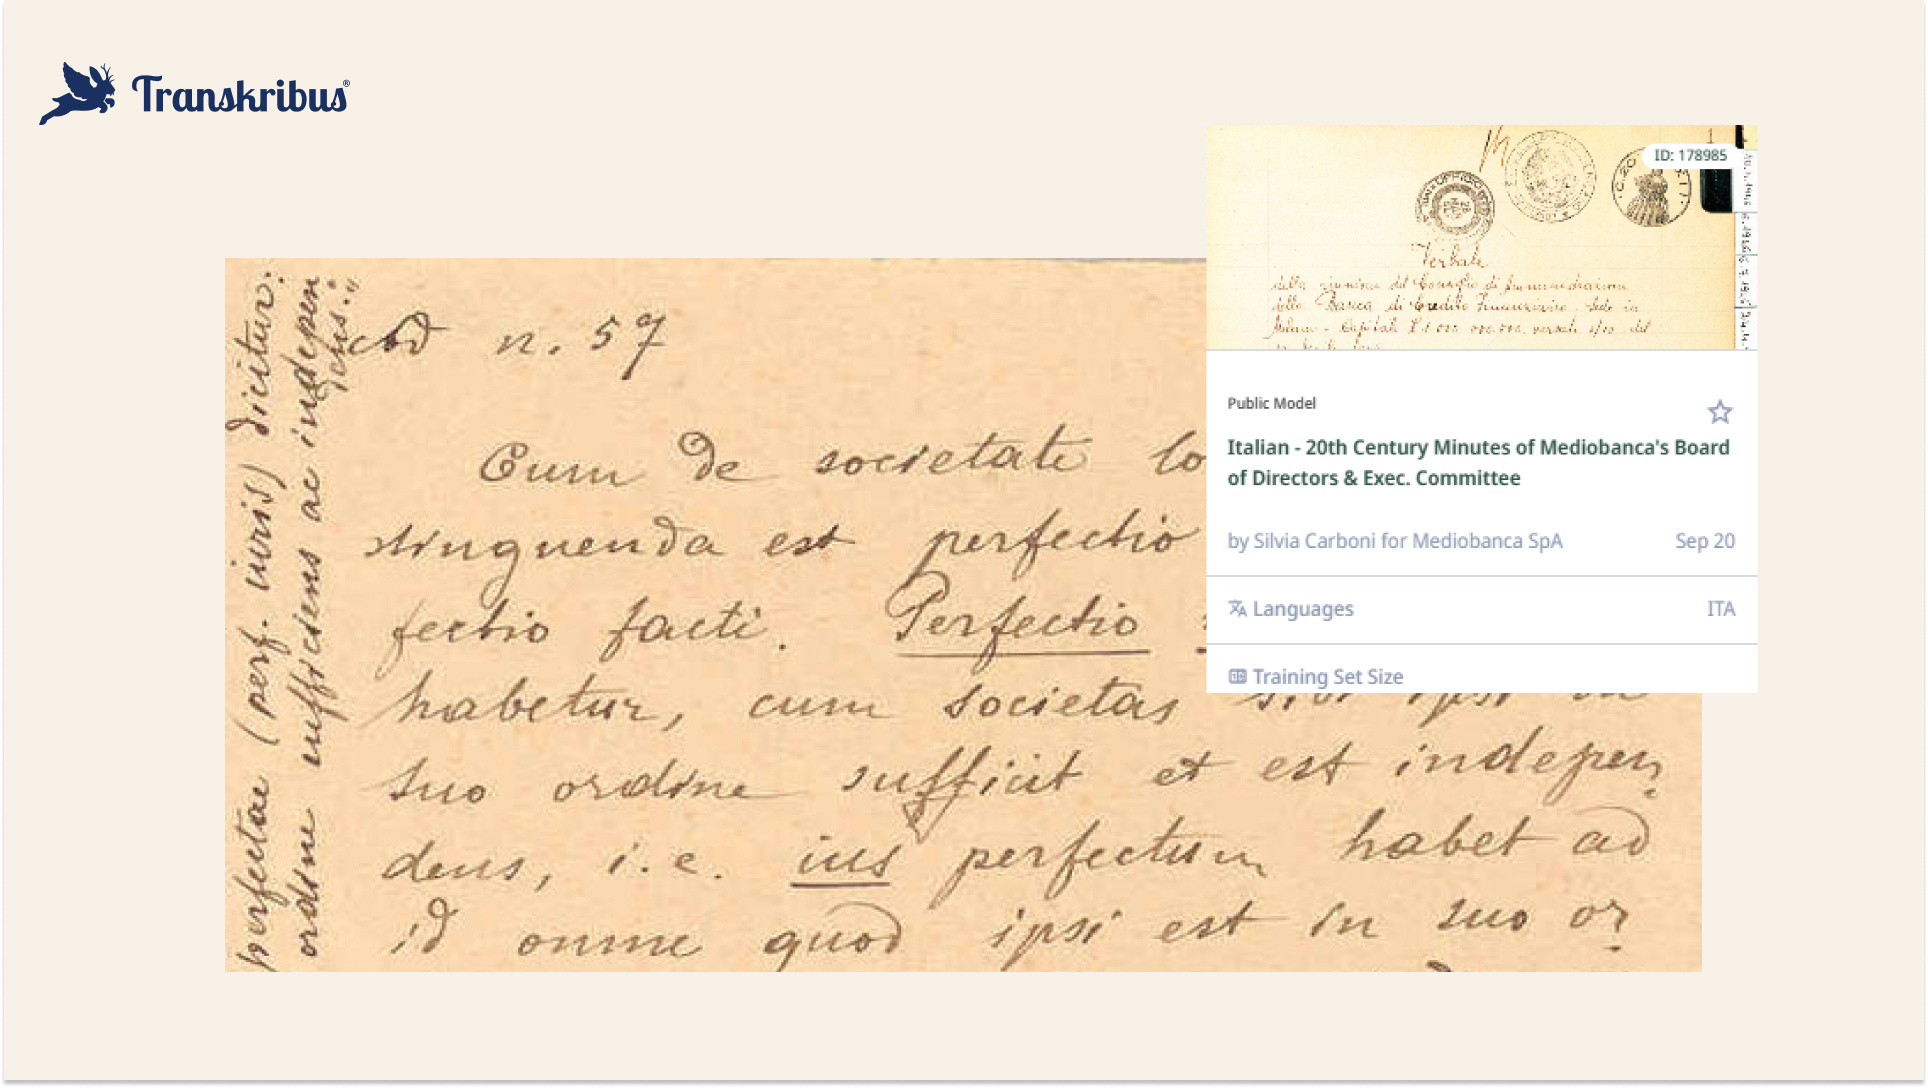 Transkribus®
ID: 178985
Verbale
della riunione del Consiglio di Amministrazione
della Banca di Credito Finanziario, Sede in
Milano - Capitale £ 1.000.000.000. versato 3/10 del
Public Model
Italian - 20th Century Minutes of Mediobanca's Board
of Directors & Exec. Committee
by Silvia Carboni for Mediobanca SpA Sep 20
Languages ITA
Training Set Size
ad n. 57
Cum de societate lo
stinguenda est perfectio
fectio facti. Perfectio
habetur, cum societas sibi ipsi in
suo ordine sufficit et est indepen
dens, i.e. ius perfectum habet ad
id omne quod ipsi est in suo or
perfectae (perf. iuris) dicitur.
ordine sufficiens ac indepen
dens."